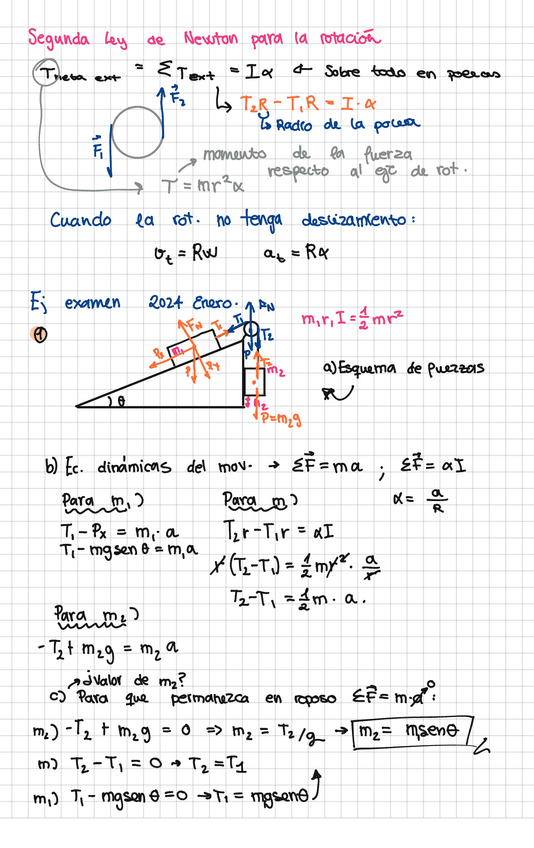 Segunda Ley de Newton para la rotación
Tneta ext = ΣText = Iα ← Sobre todo en poleas
↳ T₂R - T₁R = I·α
↳ Radio de la polea
F⃗₂
F⃗₁
momento de la fuerza
respecto al eje de rot.
T = mr²α
Cuando la rot. no tenga deslizamiento:
v_t = Rω a_t = Rα
Ej examen 2024 Enero.
①
F_N
T₁
T₁
F_N
T₂
P
m₁
m₂
P=m₂g
θ
m, r, I = 1/2 mr²
a) Esquema de fuerzas
b) Ec. dinámicas del mov. → ΣF⃗ = ma ; ΣF⃗ = αI
α = a/R
Para m₁)
T₁ - Px = m₁·a
T₁ - mgsen θ = m₁a
Para m)
T₂r - T₁r = αI
r(T₂-T₁) = 1/2 mr²· a/r
T₂-T₁ = 1/2 m · a.
Para m₂)
-T₂ + m₂g = m₂a
→ ¿Valor de m₂?
c) Para que permanezca en reposo ΣF⃗ = m·a⁰:
m₂) -T₂ + m₂g = 0 ⇒ m₂ = T₂/g → m₂ = msenθ
m) T₂ - T₁ = 0 → T₂ = T₁
m₁) T₁ - mgsen θ = 0 → T₁ = mgsenθ